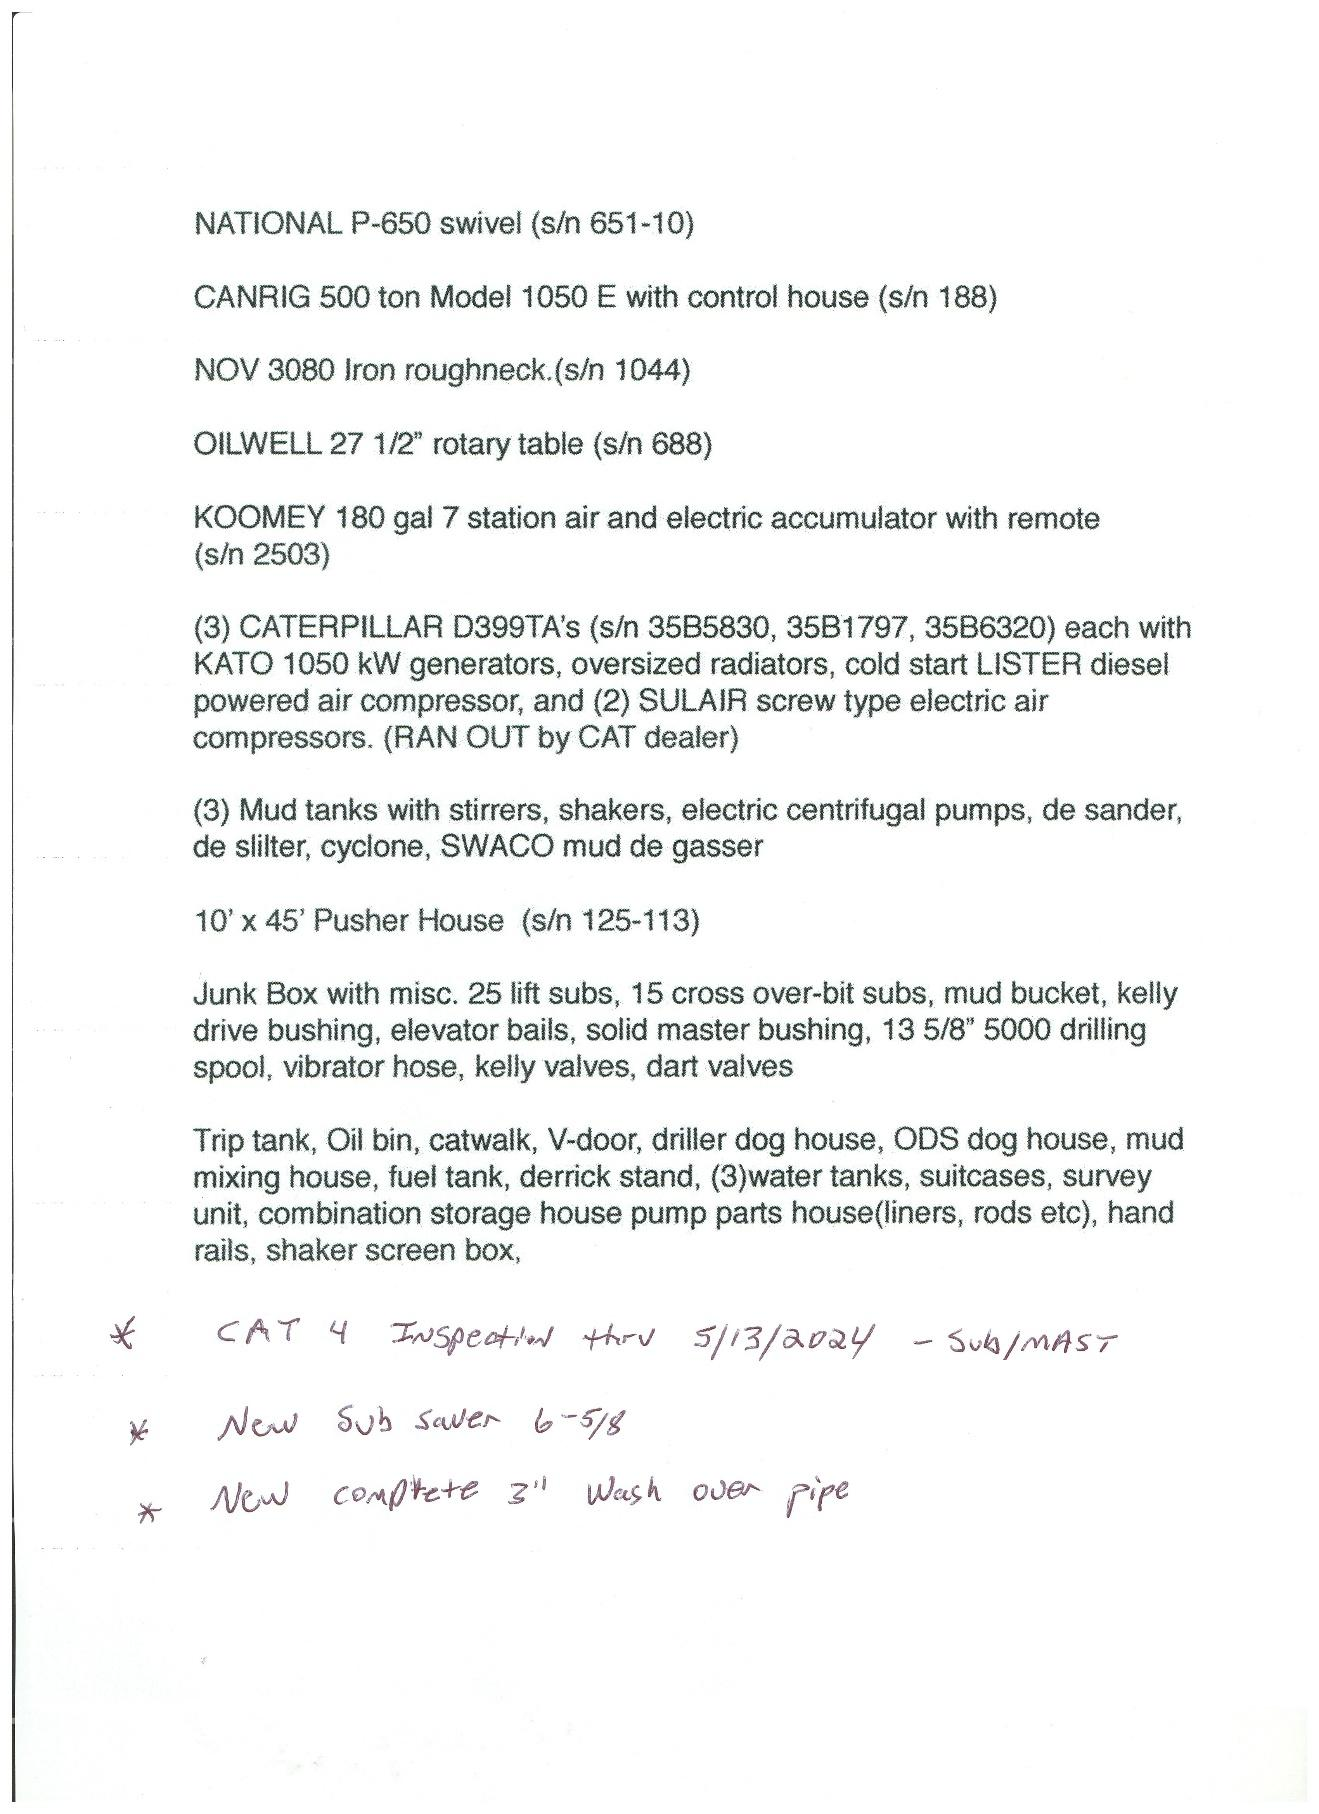 NATIONAL P-650 swivel (s/n 651-10)
CANRIG 500 ton Model 1050 E with control house (s/n 188)
NOV 3080 Iron roughneck.(s/n 1044)
OILWELL 27 1/2” rotary table (s/n 688)
KOOMEY 180 gal 7 station air and electric accumulator with remote
(s/n 2503)
(3) CATERPILLAR D399TA’s (s/n 35B5830, 35B1797, 35B6320) each with
KATO 1050 kW generators, oversized radiators, cold start LISTER diesel
powered air compressor, and (2) SULAIR screw type electric air
compressors. (RAN OUT by CAT dealer)
(3) Mud tanks with stirrers, shakers, electric centrifugal pumps, de sander,
de slilter, cyclone, SWACO mud de gasser
10’ x 45’ Pusher House (s/n 125-113)
Junk Box with misc. 25 lift subs, 15 cross over-bit subs, mud bucket, kelly
drive bushing, elevator bails, solid master bushing, 13 5/8” 5000 drilling
spool, vibrator hose, kelly valves, dart valves
Trip tank, Oil bin, catwalk, V-door, driller dog house, ODS dog house, mud
mixing house, fuel tank, derrick stand, (3)water tanks, suitcases, survey
unit, combination storage house pump parts house(liners, rods etc), hand
rails, shaker screen box,
* CAT 4 Inspection thru 5/13/2024 - Sub/MAST
* New Sub saver 6-5/8
* New complete 3" Wash over pipe